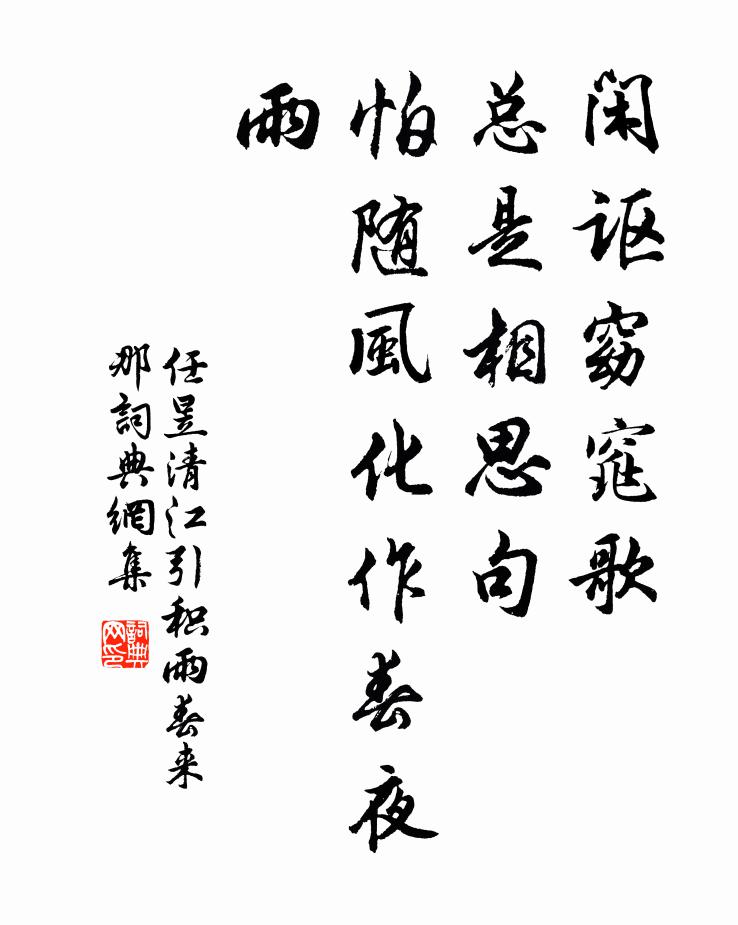 闲讴窈窕歌
总是相思句
怕随風化作春夜
雨
任昱清江引积雨春来
那詞典網集
詞典網印